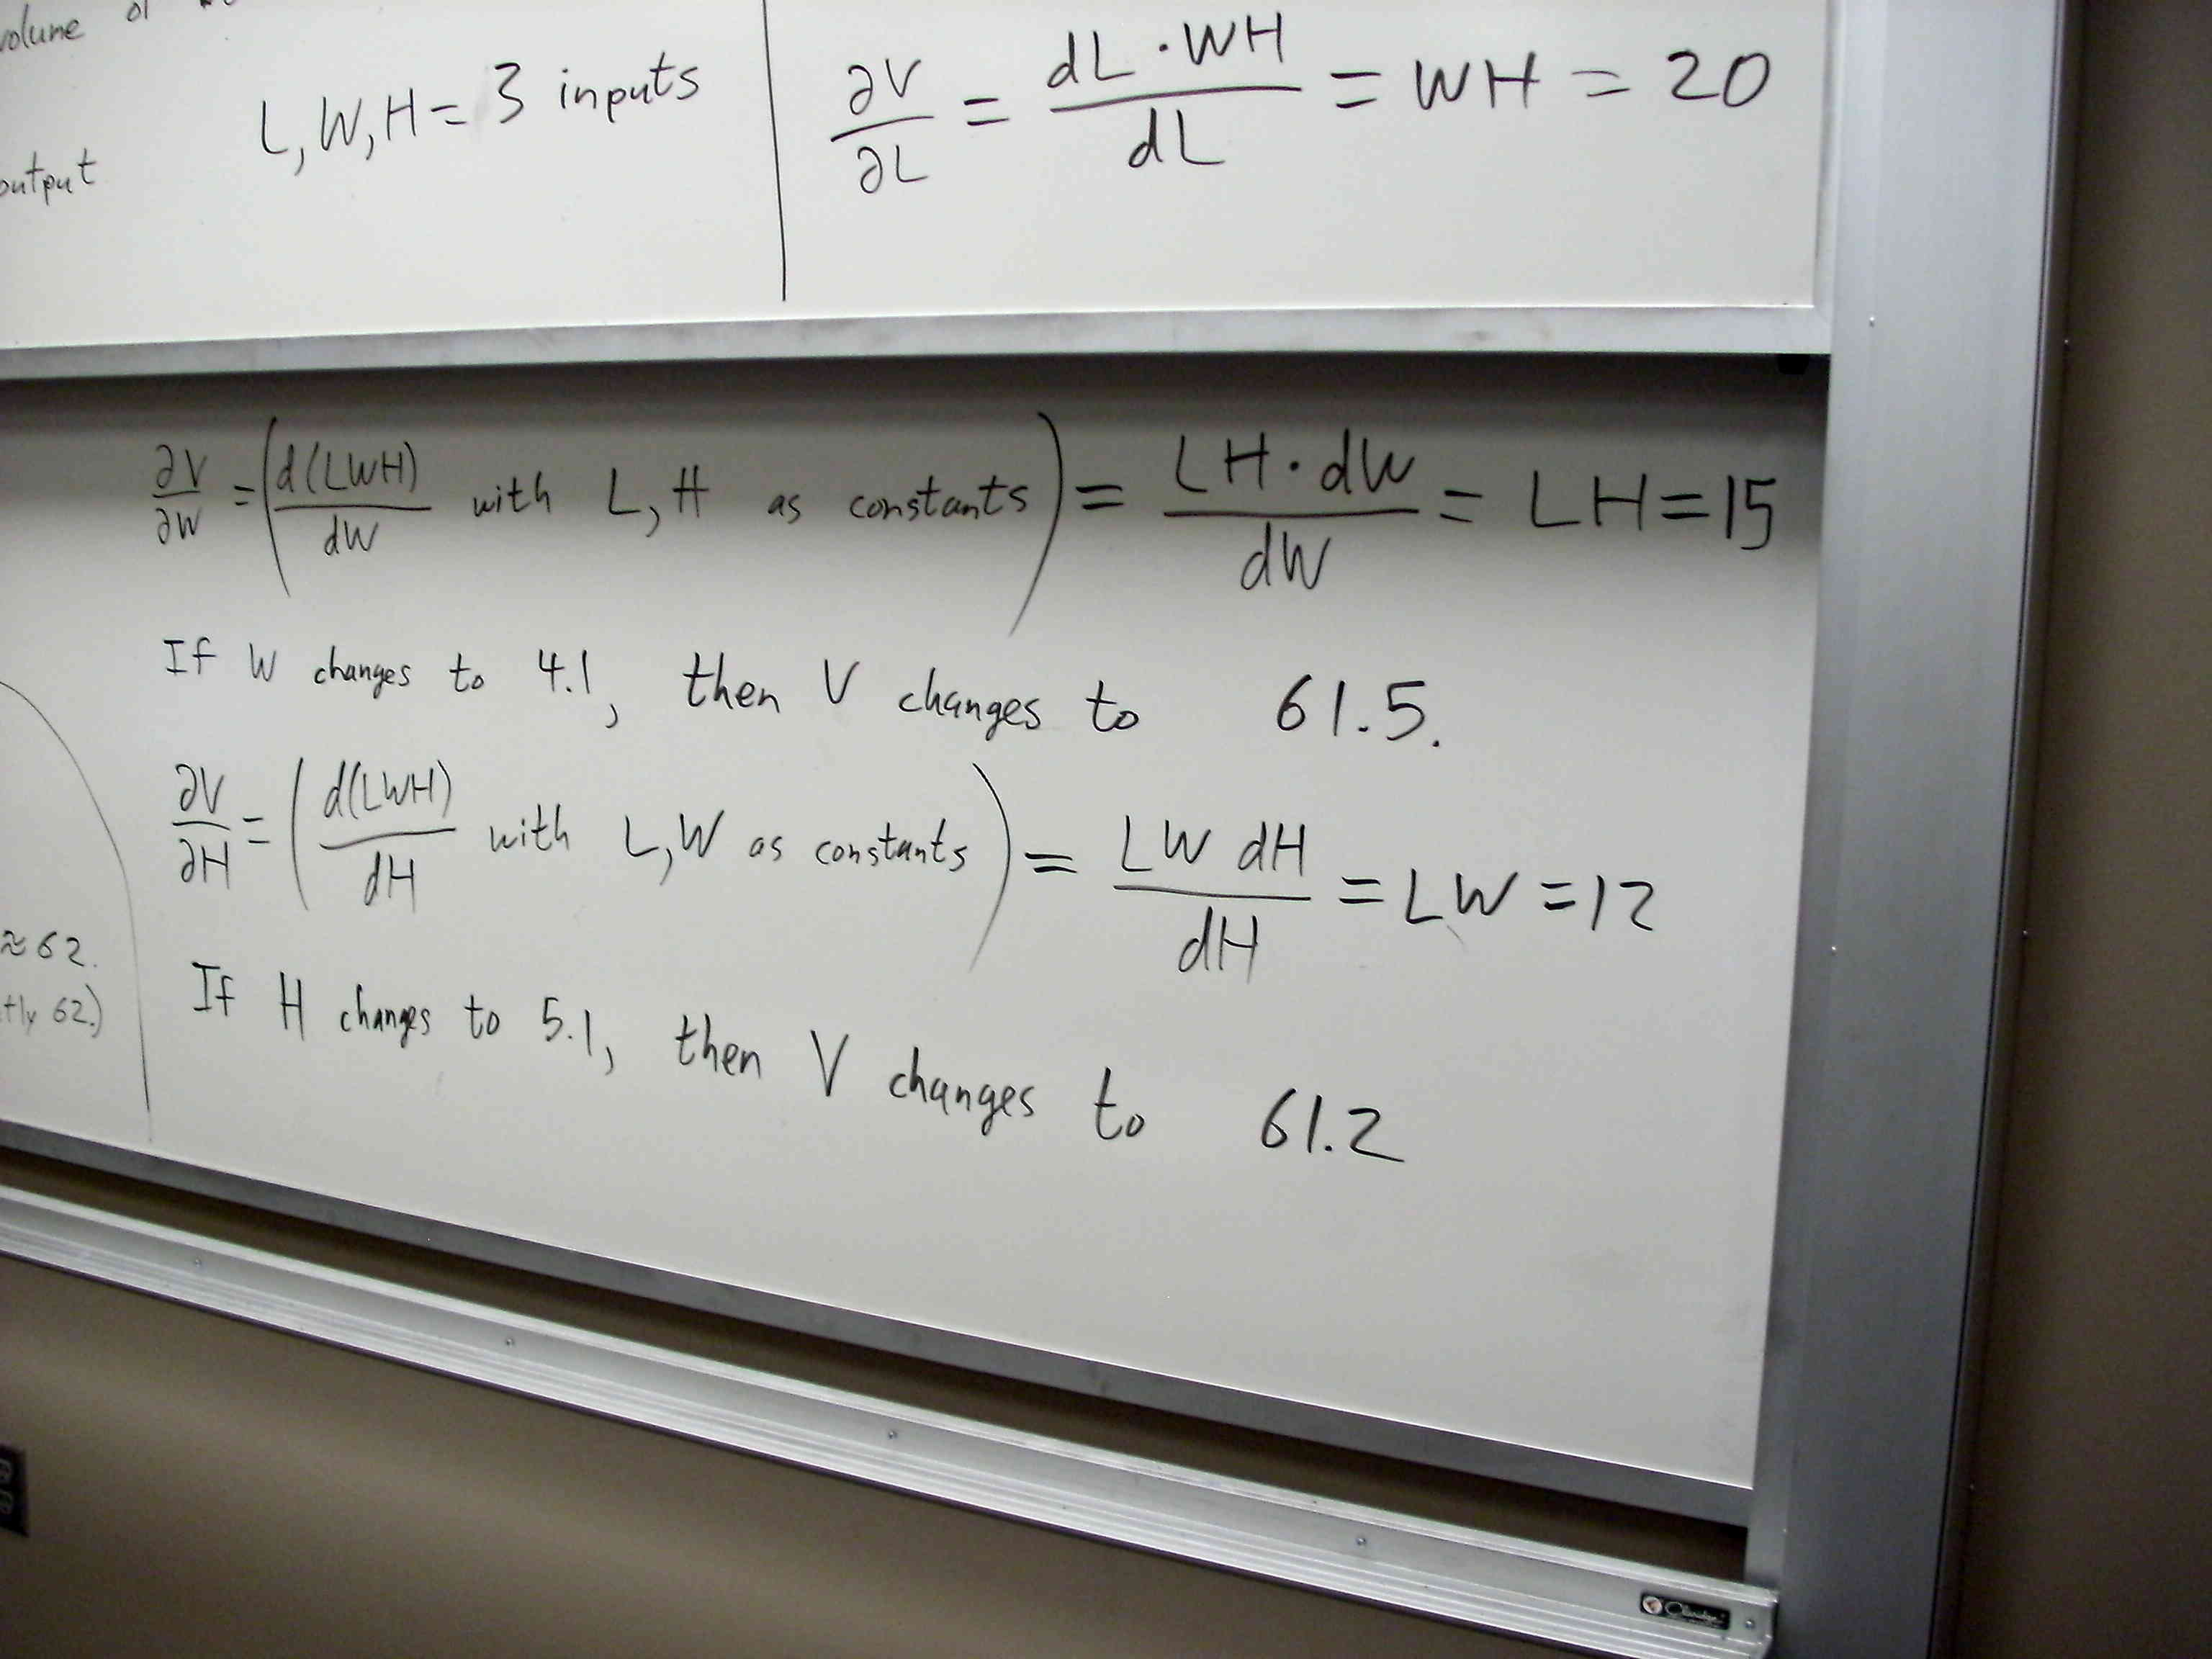 volume of
L, W, H = 3 inputs
output
∂V/∂L = dL · WH/dL = WH = 20
∂V/∂W = (d(LWH)/dW with L, H as constants) = LH · dW/dW = LH = 15
If W changes to 4.1, then V changes to 61.5.
∂V/∂H = (d(LWH)/dH with L, W as constants) = LW dH/dH = LW = 12
≈ 62.
If H changes to 5.1, then V changes to 61.2
62.)